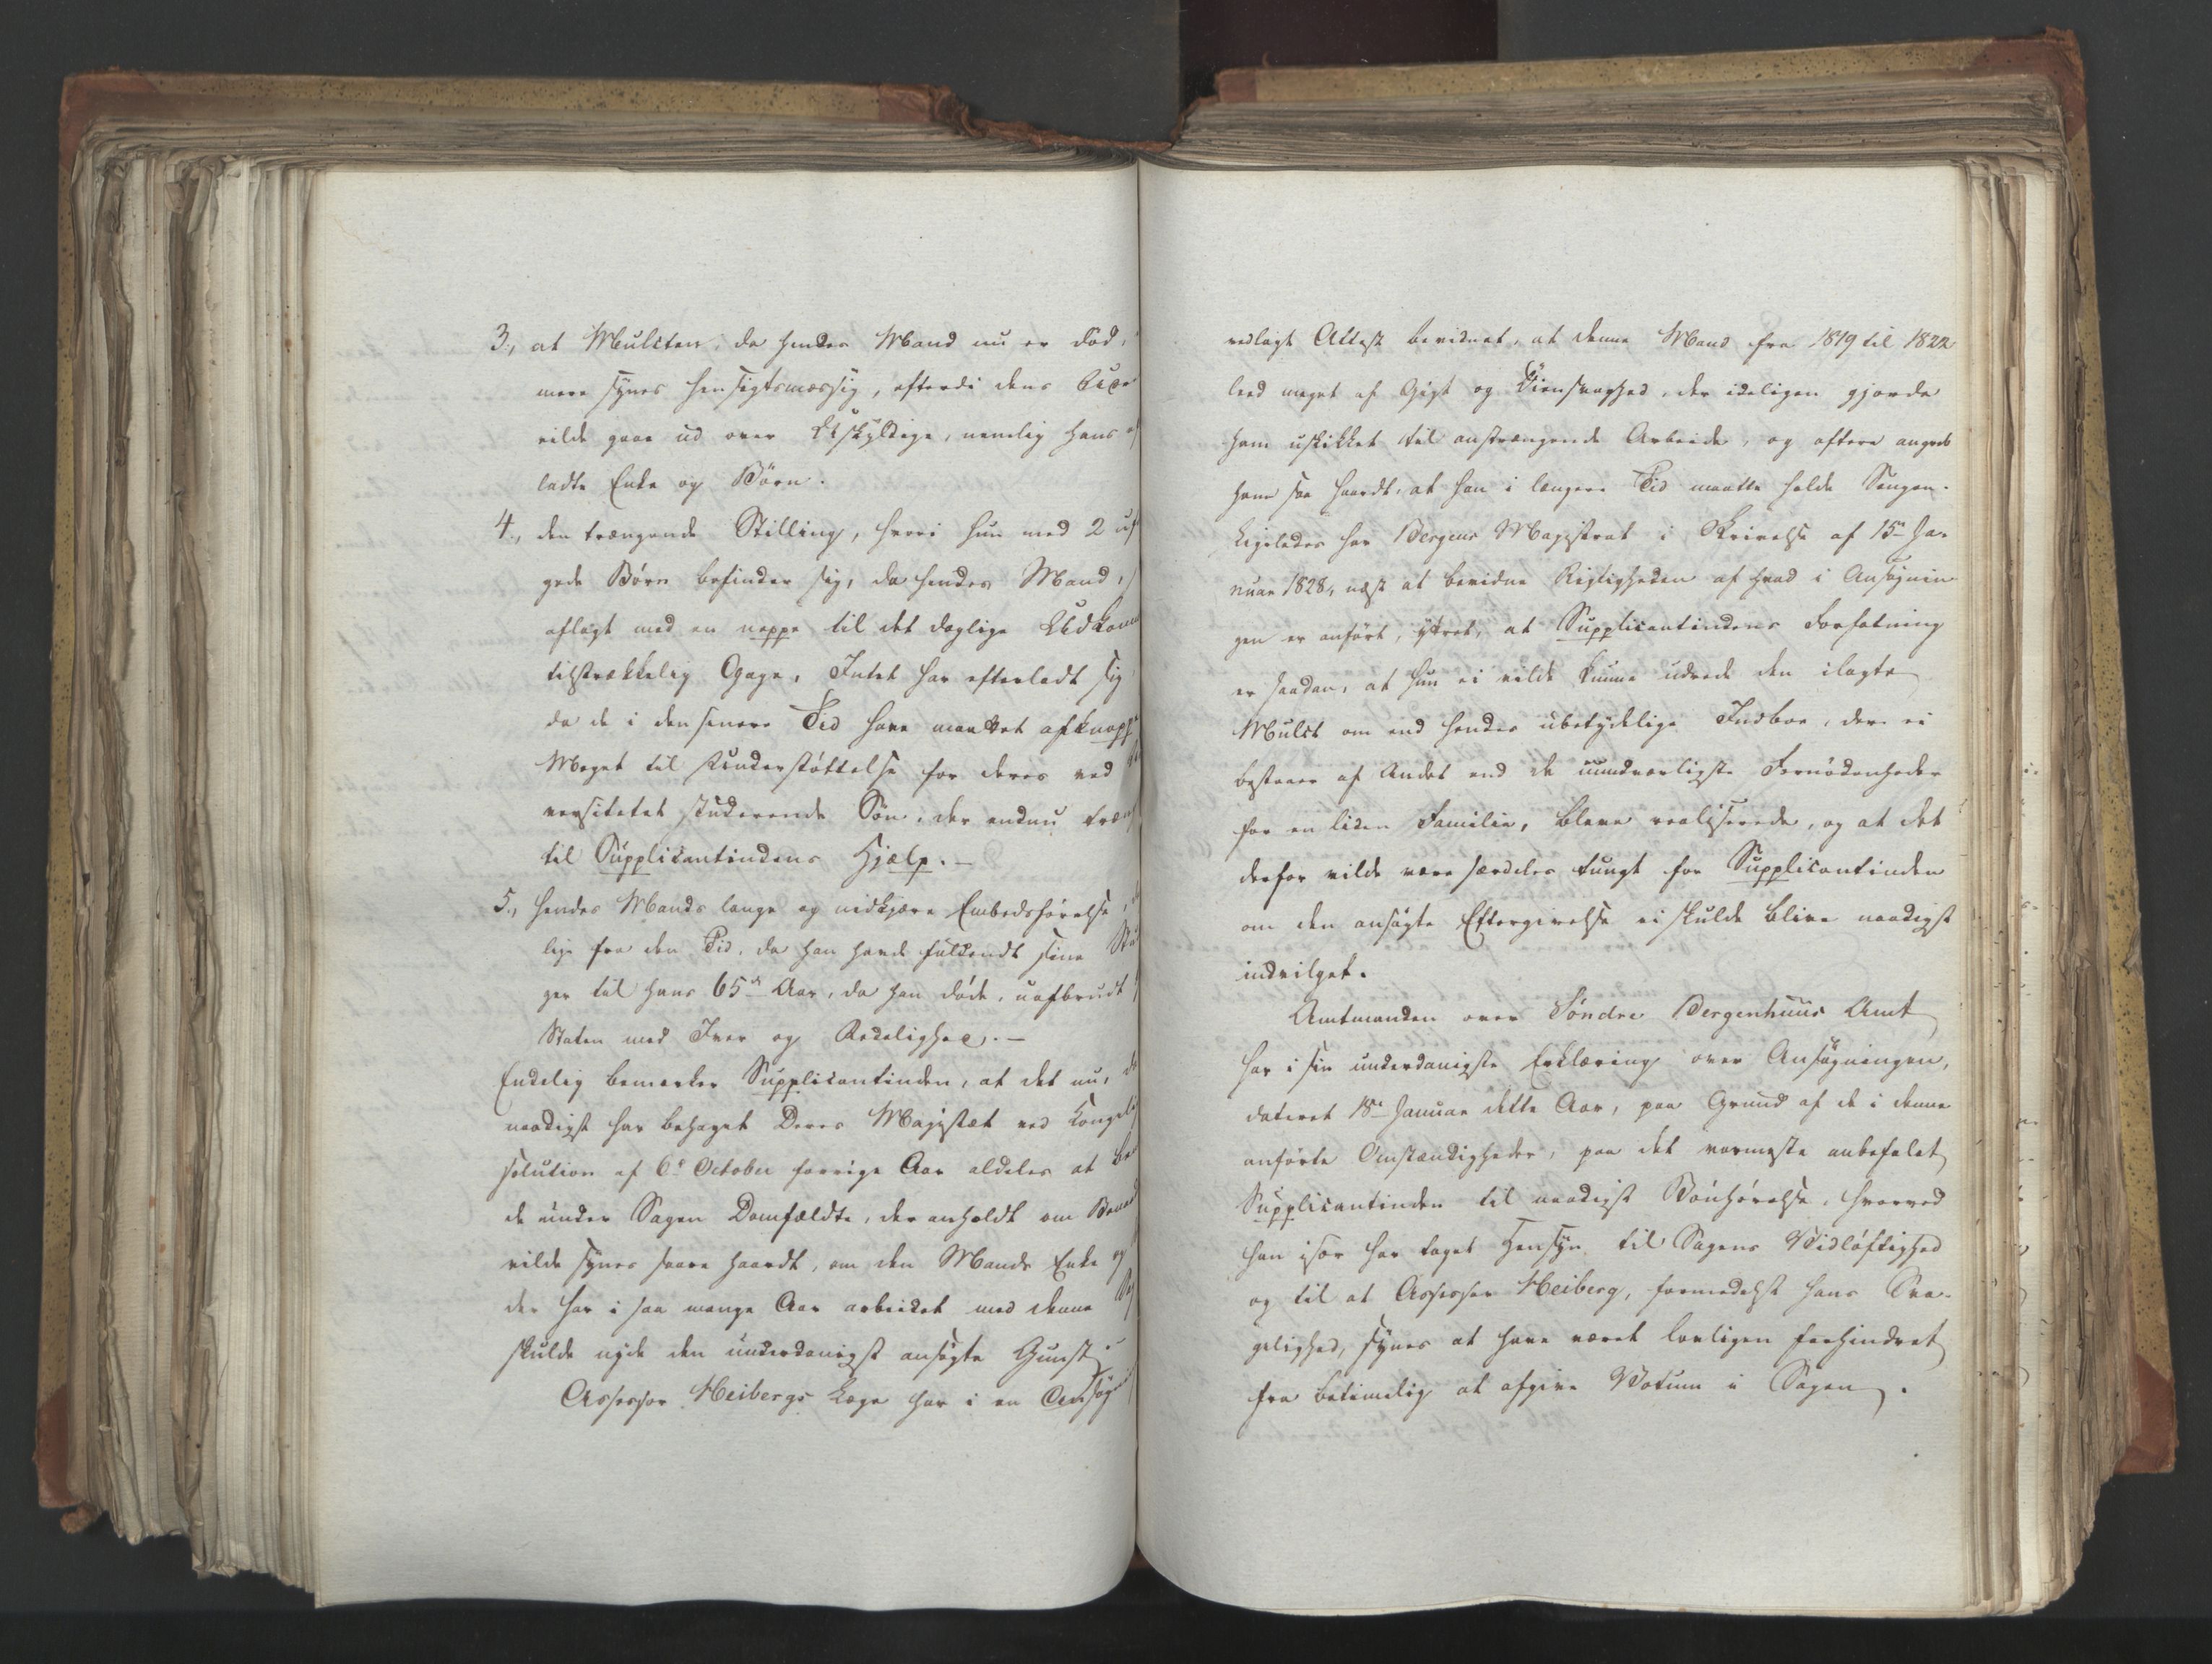 3., at Mulcten, da hendes Mand nu er død,
mere synes hensigtsmæssig, efterdi dens
vilde gaae ud over Uskyldige, nemlig hans
ladte Enke og Börn.
4., den trængende Stilling, hvori hun med 2
gede Börn befinder sig, da hendes Mand,
aflagt med en neppe til det daglige Udkomm
tilstrækkelig Gage, Intet har efterladt sig
da de i den senere Tid have maattet afknappe
Meget til Understøttelse for deres ved
versitetet studerende Søn, der endnu træng
til Supplicantindens Hjælp. –
5., hendes Mands lange og nidkjære Embedsførelse,
lige fra den Tid, da han havde fuldendt sine Stu
ger til hans 65de Aar, da han døde, uafbrudt
Staten med Iver og Redelighed. –
Endelig bemærker Supplicantinden, at det nu, da
naadigst har behaget Deres Majestæt ved Kongelig
solution af 6te October forrige Aar aldeles at
de under Sagen Domfældte, der anholdt om
vilde synes saare haardt, om den Mands Enke og
der har i saa mange Aar arbeidet med denne
skulde nyde den underdanigst ansøgte Gunst.
Assessor Heibergs Læge har i en Ansøgn
vedlagt Attest bevidnet, at denne Mand fra 1819 til 1822
leed meget af Gigt og Øiensvaghed, der ideligen gjorde
ham uskikket til anstrængende Arbeide, og oftere angreb
ham saa haardt, at han i længere Tid maatte holde Sengen.
Ligeledes har Bergens Magistrat i Skrivelse af 15de Ja-
nuar 1828, næst at bevidne Rigtigheden af hvad i Ansøgnin
gen er anført, yttret, at Supplicantindens Forfatning
er saadan, at hun ei vilde kunne udrede den ilagte
Mulct om end hendes ubetydelige Indboe, der ei
bestaaer af Andet end de uundværligste Fornødenheder
for en liden Familie, bleve realiserede, og at det
derfor vilde være særdeles tungt for Supplicantinden
om den ansøgte Eftergivelse ei skulde blive naadigst
indvilget.
Amtmanden over Søndre Bergenhuus Amt
har i sin underdanigste Erklæring over Ansøgningen,
dateret 18de Januar dette Aar, paa Grund af de i denne
anførte Omstændigheder, paa det varmeste anbefalet
Supplicantinden til naadigst Bønhørelse, hvorved
han især har taget Hensyn til Sagens Vidløftighed
og til at Assessor Heiberg, formedelst hans Sva-
gelighed, synes at have været lovligen forhindret
fra betimelig at afgive Votum i Sagen.